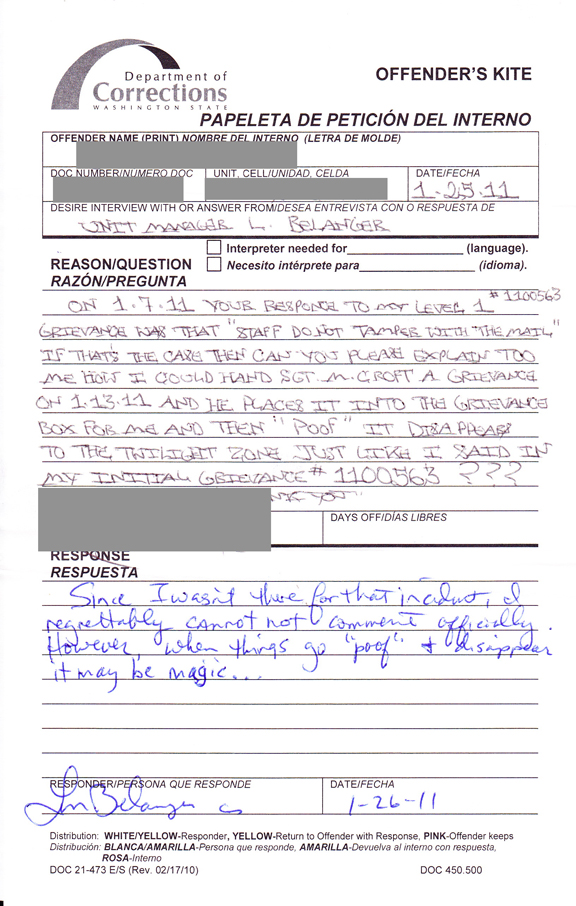 Department of
Corrections
WASHINGTON STATE
OFFENDER'S KITE
PAPELETA DE PETICIÓN DEL INTERNO
OFFENDER NAME (PRINT) NOMBRE DEL INTERNO (LETRA DE MOLDE)
DOC NUMBER/NÚMERO DOC UNIT, CELL/UNIDAD, CELDA DATE/FECHA
1-25-11
DESIRE INTERVIEW WITH OR ANSWER FROM/DESEA ENTREVISTA CON O RESPUESTA DE
UNIT MANAGER L. BELANGER
Interpreter needed for (language).
REASON/QUESTION Necesito intérprete para (idioma).
RAZÓN/PREGUNTA
ON 1.7.11 YOUR RESPONSE TO MY LEVEL 1 #1100563
GRIEVANCE WAS THAT "STAFF DO NOT TAMPER WITH "THE MAIL"
IF THAT'S THE CASE THEN CAN YOU PLEASE EXPLAIN TOO
ME HOW I COULD HAND SGT. M. CROFT A GRIEVANCE
ON 1.13.11 AND HE PLACES IT INTO THE GRIEVANCE
BOX FOR ME AND THEN "POOF" IT DISAPPEARS
TO THE TWILIGHT ZONE JUST LIKE I SAID IN
MY INITIAL GRIEVANCE # 1100563 ???
YOU"
DAYS OFF/DÍAS LIBRES
RESPONSE
RESPUESTA
Since I wasn't there for that incident, I
regrettably cannot not comment officially.
However, when things go "poof" + disappear
it may be magic...
RESPONDER/PERSONA QUE RESPONDE DATE/FECHA
Belanger 1-26-11
Distribution: WHITE/YELLOW-Responder, YELLOW-Return to Offender with Response, PINK-Offender keeps
Distribución: BLANCA/AMARILLA-Persona que responde, AMARILLA-Devuelva al interno con respuesta,
ROSA-Interno
DOC 21-473 E/S (Rev. 02/17/10) DOC 450.500